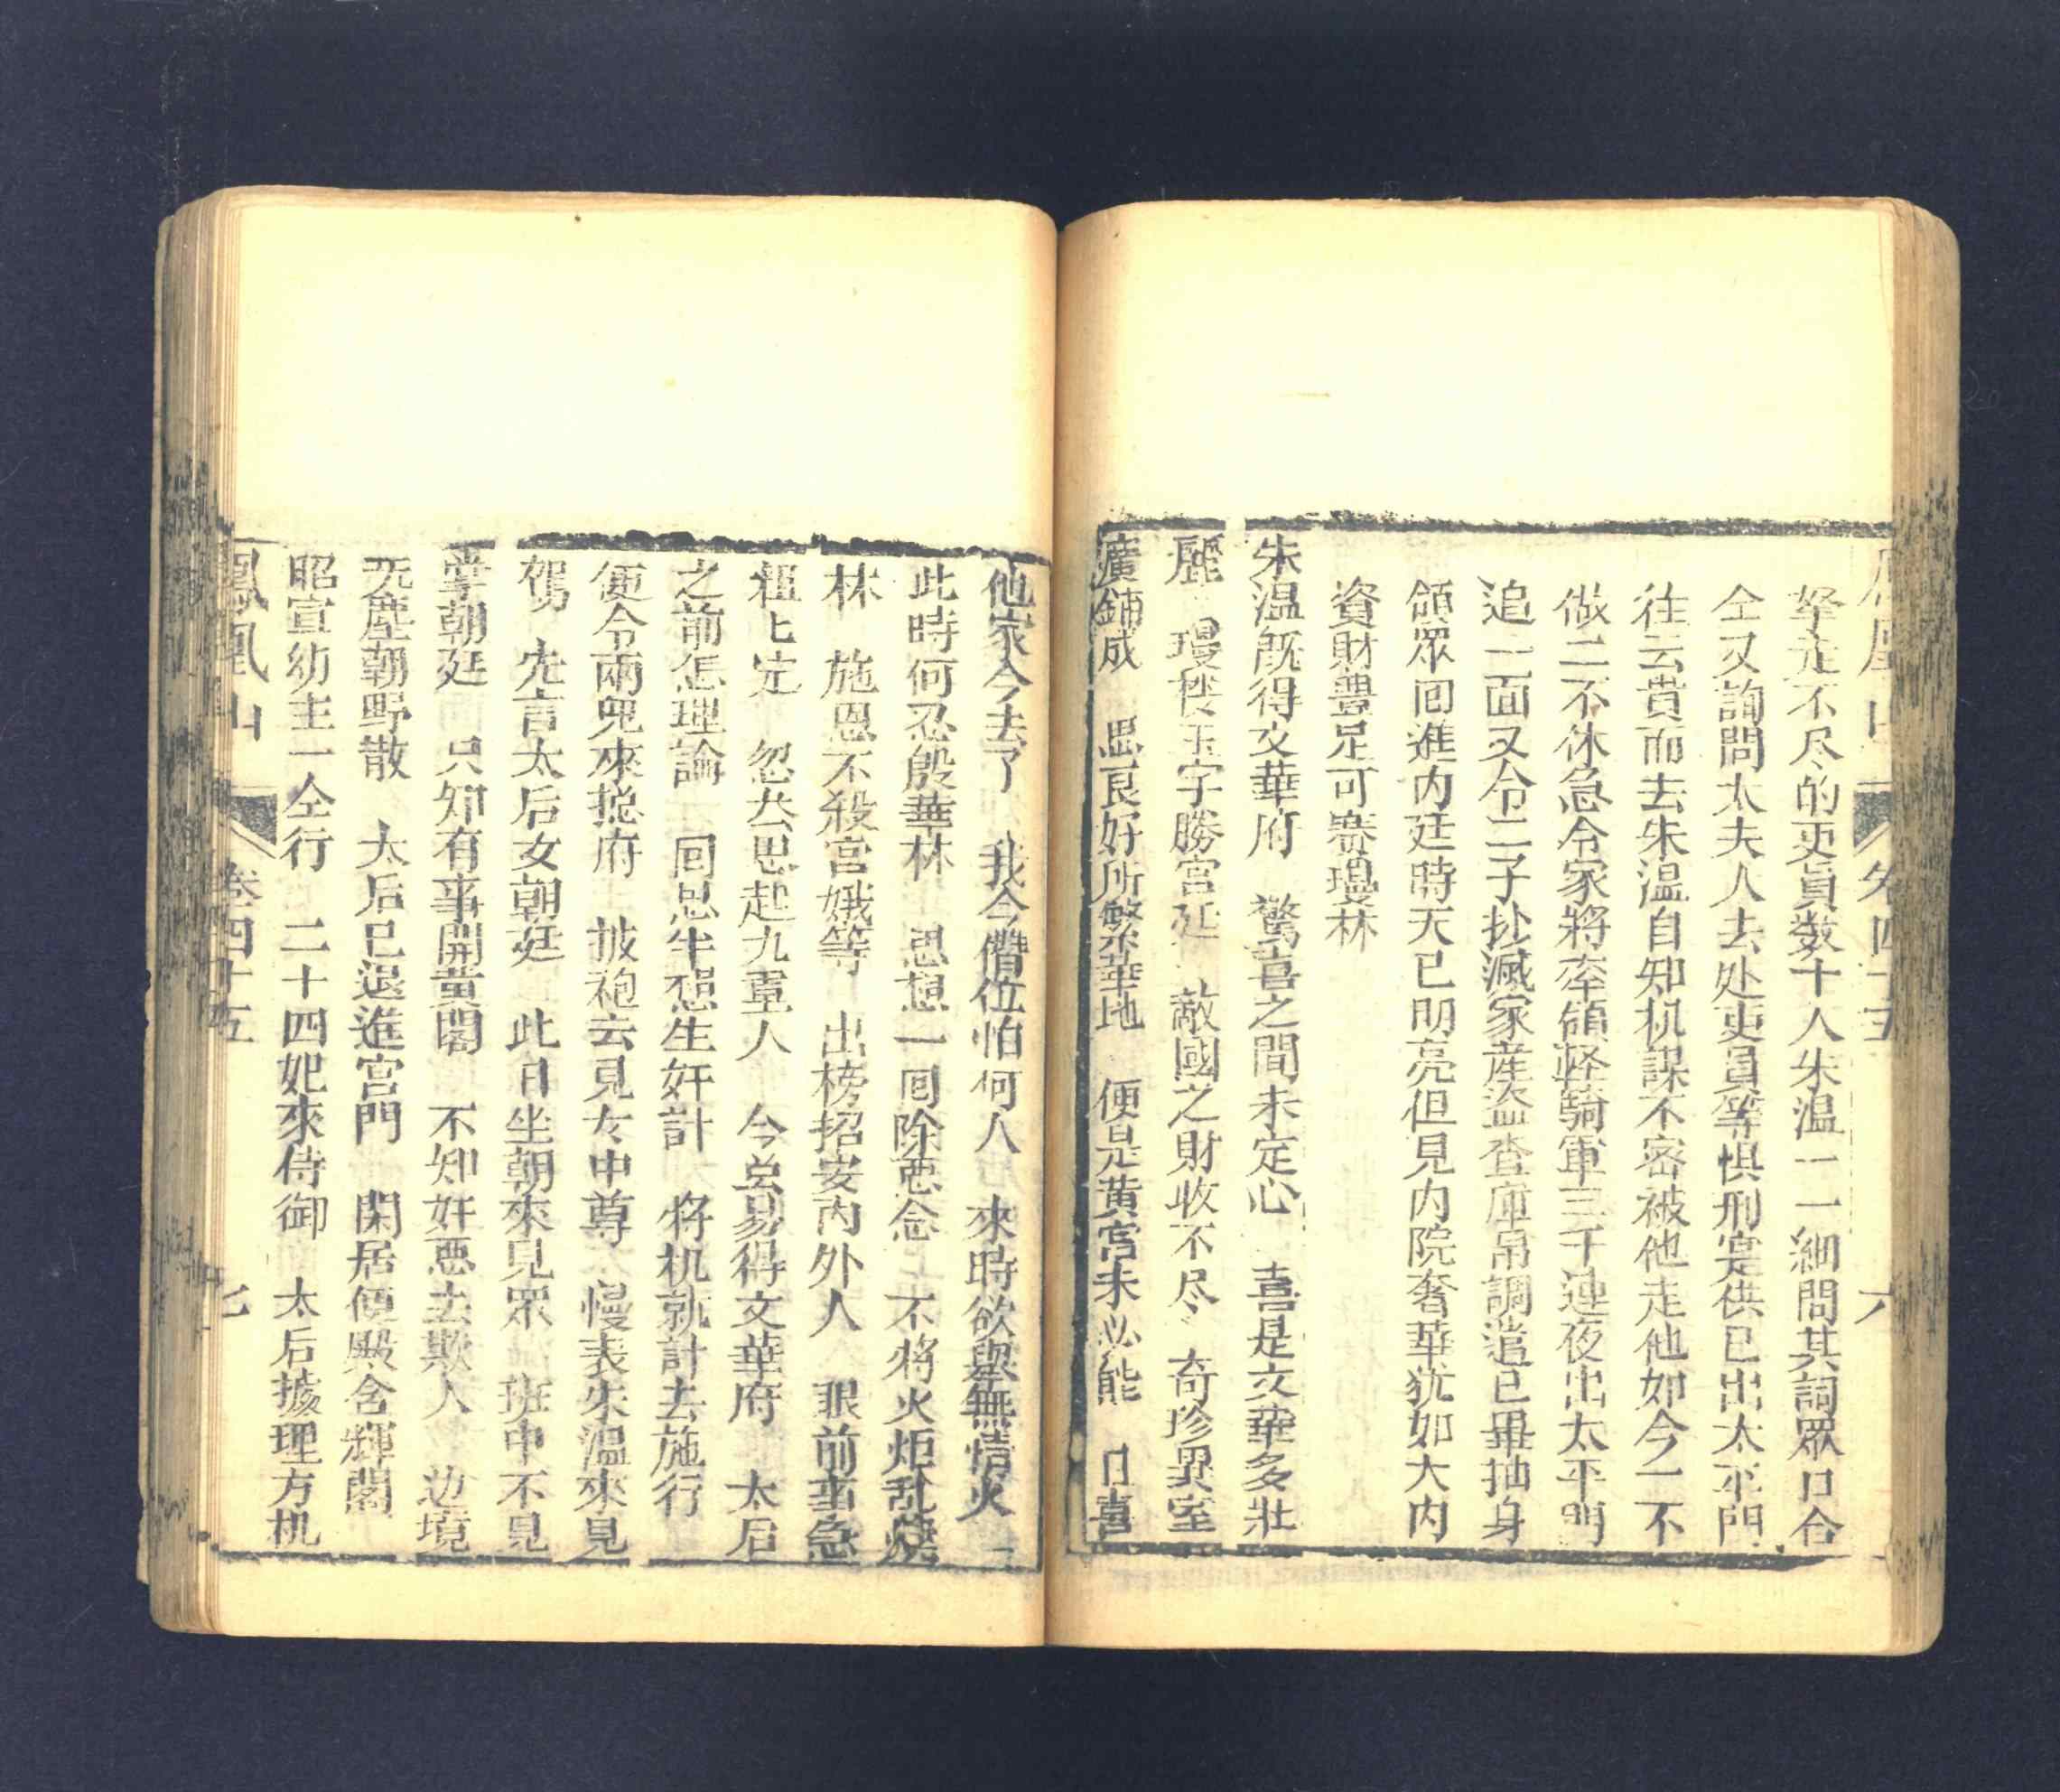 鳳凰山 卷四十五 六
拏走不尽的吏員数十人朱温一一細問其詞眾口合
仝又詢問太夫人去处吏員等惧刑寔供已出太平門
往云貴而去朱温自知机謀不密被他走他如今一不
做二不休急令家將率領輕騎軍三千連夜出太平門
追一面又令二子抄滅家産盜查庫吊調遣已畢抽身
領眾回進内廷時天已明亮但見内院奢華犹如大内
資財豊足可賽瓊林
朱温既得文華府 驚喜之間未定心 喜是文華多壯
麗 瓊楼玉宇勝宮廷 敵國之財收不尽 奇珍異室
廣鋪成 思良好所繁華地 便是黄宫未必能 口喜
他家今去了 我今僭位怕何人 來時欲與無情火
此時何忍殷華林 思想一囘除恶念 不将火炬乱燒
林 施恩不殺宮娥等 出榜招安内外人 眼前事急
粗七定 忽然思起九重人 今虽易得文華府 太后
之前怎理論 囘思半想生奸計 将机就計去施行
便令兩児來挽府 披袍去見女中尊 慢表朱温來見
駕 先言太后女朝廷 此日坐朝來見眾 班中不見
掌朝廷 只知有事開黄閣 不知奸恶去欺人 边境
无塵朝野散 太后已退進宮門 閑居便殿含輝閣
昭宣幼主一仝行 二十四妃來侍御 太后據理方机
鳳凰山 卷四十五 七